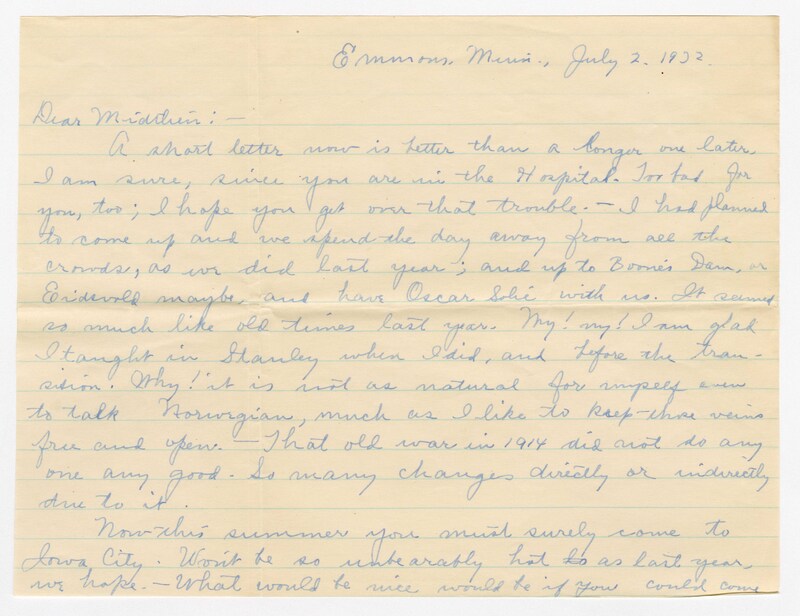 Emmons, Minn., July 2. 1932.
Dear Midthun: —
A short letter now is better than a longer one later,
I am sure, since you are in the Hospital. Too bad for
you, too; I hope you get over that trouble. — I had planned
to come up and we spend the day away from all the
crowds, as we did last year; and up to Boone's Dam, or
Eidsvold maybe, and have Oscar Solie with us. It seemed
so much like old times last year. My! my! I am glad
I taught in Stanley when I did, and before the tran-
sision. Why! it is not as natural for myself even
to talk Norwegian, much as I like to keep those veins
free and open. — That old war in 1914 did not do any
one any good. So many changes directly or indirectly
due to it.
Now this summer you must surely come to
Iowa City. Won't be so unbearably hot as last year,
we hope. — What would be nice would be if you could come